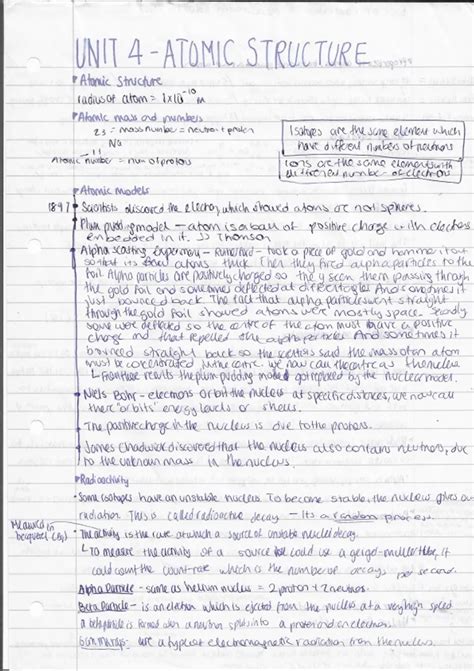 UNIT 4 - ATOMIC STRUCTURE
Atomic Structure
radius of atom = 1x10^-10 m
Atomic mass and numbers
23 - mass number = neutron + proton
Na
11
Atomic number = num of protons
Isotopes are the same element which
have different numbers of neutrons
ions are the same elements with
different number of electrons
Atomic models
1897
Scientists discovered the electron, which showed atoms are not spheres.
Plum pudding model - atom is a ball of positive charge with electrons
embedded in it. JJ Thomson
Alpha scattering Experiment - Rutherford - took a piece of gold and hammered it out
so that its few atoms thick. Then they fired alpha particles to the
foil. Alpha particles are positively charged so they seen them passing through
the gold foil and sometimes deflected at different angles And sometimes it
just bounced back. The fact that alpha particles went straight
through the gold foil showed atoms were mostly space. Secondly
some were deflected so the centre of the atom must have a positive
charge and that repelled the alpha particles. And sometimes it
bounced straight back so the scientists said the mass of an atom
must be concentrated in the centre. we now call the centre as the nucleus
From these results the plum-pudding model got replaced by the nuclear model.
Niels Bohr - electrons orbit the nucleus at specific distances, we now call
there "orbits" energy levels or shells.
The positive charge in the nucleus is due to the protons.
James Chadwick discovered that the nucleus also contains neutrons, due
to the unknown mass in the nucleus.
Radioactivity
Some isotopes have an unstable nucleus. To become stable, the nucleus gives out
radiation. This is called radioactive decay - its a random process.
Measured in
becquerel (Bq)
The activity is the rate at which a source of unstable nuclei decay.
To measure the activity of a source you could use a geiger-muller tube, it
could count the count-rate which is the number of decays per second.
Alpha Particle - same as helium nucleus = 2 proton + 2 neutrons.
Beta Particle - is an electron which is ejected from the nucleus at a very high speed
a beta particle is formed when a neutron splits into a proton and an electron.
are a type of electromagnetic radiation from the nucleus.